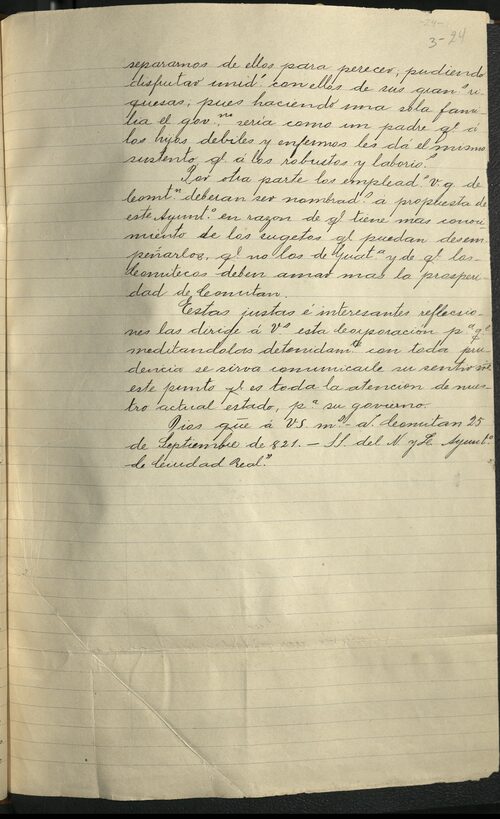 -24-
3-24
separarnos de ellos para perecer, pudiendo
disfrutar unid.s con ellos de sus gran.s ri-
quesas, pues haciendo una sola fami-
lia el gov.no seria como un padre q.e á
los hijos debiles y enfermos les da el mismo
sustento q.e á los robustos y laborio.s
Por otra parte los emplead.s v. g. de
Comit.n deberan ser nombrad.s a propuesta de
este Ayunt.o en razon de q.e tiene mas conoci-
miento de los sugetos q.e puedan desem-
peñarlos, q.e no los de Guat.a y de q.e los
Comitecos deben amar mas la prosperi-
dad de Comitan.
Estas justas é interesantes reflecio-
nes las dirige á V.s esta Corporación p.a q.e
meditandolas detenidam.te con toda pru-
dencia se sirva comunicarle su sentir s.e
este punto q.e es toda la atencion de nues-
tro actual estado, p.a su govierno.
Dios gue á V.S. m.s a.s Comitan 25
de Septiembre de 821. - SS. del N. y L. Ayunt.o
de Ciudad Real."